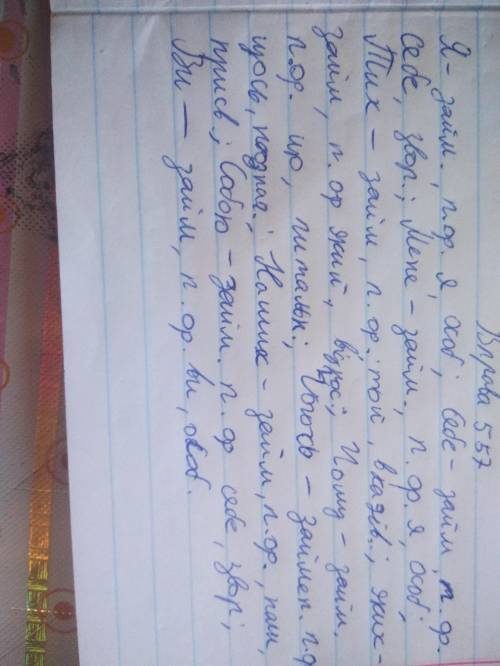 Вправа 557
Я - займ., п.ф. я, особ; Себе - займ, п.ф.
себе, звор.; Мене - займ., п.ф. я, особ;
Тих - займ, п.ф. той, вказів.; яких -
займ, п.ф який, віднос; Чому - займ.
п.ф. що, питальн; Чогось - займен. п.ф
щось, неознач.; Наших - займ, п.ф., наш,
присв.; Собою - займ. п. ф себе, звор;
Ви - займ, п.ф. ви, особ.